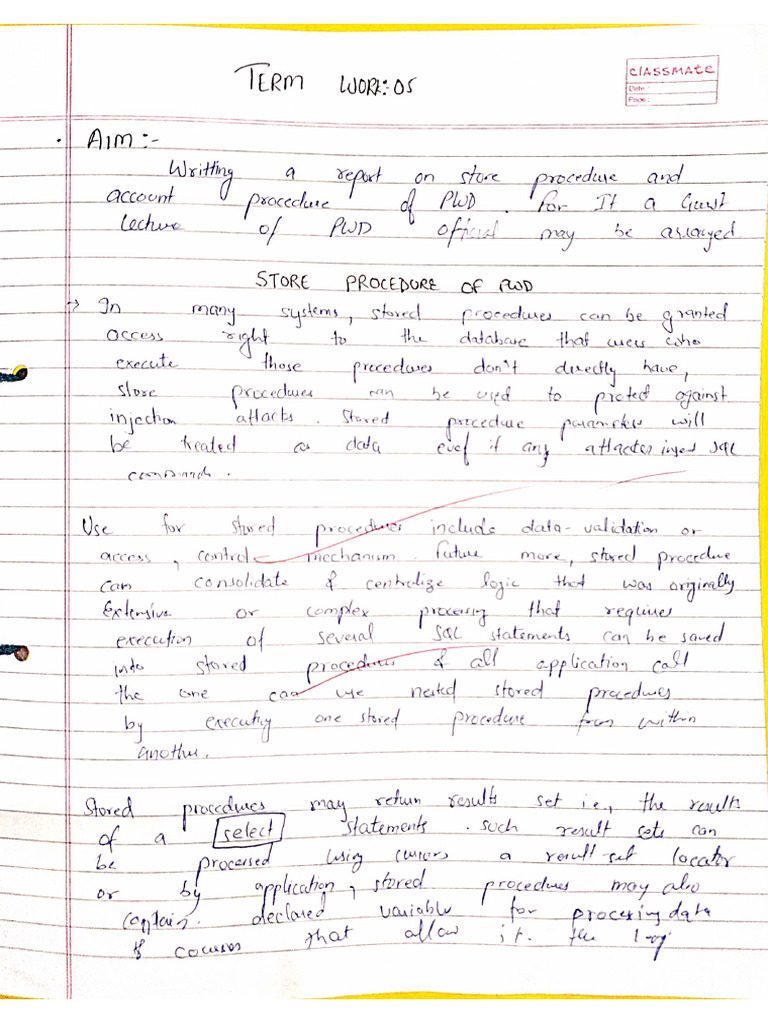 TERM WORK:-05
CLASSMATE
Date :
Page :
AIM :-
Writting a report on store procedure and
account procedure of PWD. For It a Guest
lecture of PWD official may be arranged
STORE PROCEDURE OF PWD
→ In many systems, stored procedures can be granted
access right to the database that users who
execute those procedures don't directly have,
store procedures can be used to protect against
injection attacks. Stored procedure parameters will
be treated as data even if any attacker insert SQL
commands.
Use for stored procedures include data-validation or
access, control mechanism. Future more, stored procedure
can consolidate & centralize logic that was originally
Extensive or complex processing that requires
execution of several SQL statements can be saved
into stored procedures & all application call
the one can use nested stored procedures
by executing one stored procedure from within
another.
Stored procedures may return results set i.e., the results
of a select statements. such result sets can
be processed using cursors a result set locator
or by application, stored procedures may also
contain declared variable for processing data
& courses that allow it. the loop